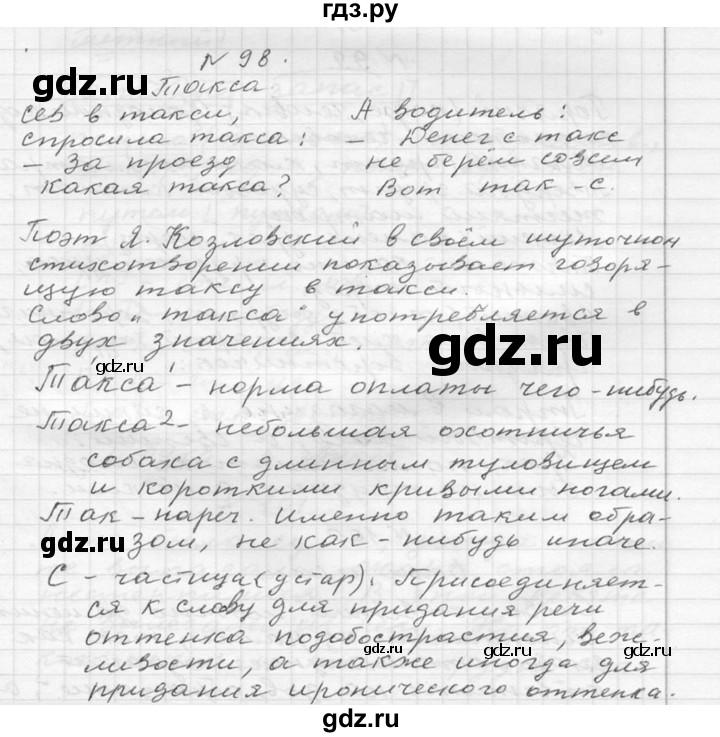 гдз.ру
№ 98.
Такса
Сев в такси,
спросила такса:
– За проезд
какая такса?
А водитель:
– Денег с такс
не берём совсем
Вот так-с.
Поэт Я. Козловский в своём шуточном
стихотворении показывает говоря-
щую таксу в такси.
Слово „такса" употребляется в
двух значениях.
Та́кса¹ – норма оплаты чего-нибудь.
Такса² – небольшая охотничья
собака с длинным туловищем
и короткими кривыми ногами.
Так – нареч. Именно таким обра-
зом, не как-нибудь иначе.
С – частица (устар). Присоединяет-
ся к слову для придания речи
оттенка подобострастия, веж-
ливости, а также иногда для
придания иронического оттенка.
gdz.ru
gdz.ru
gdz.ru
gdz.ru
gdz.ru
gdz.ru
gdz.ru
gdz.ru